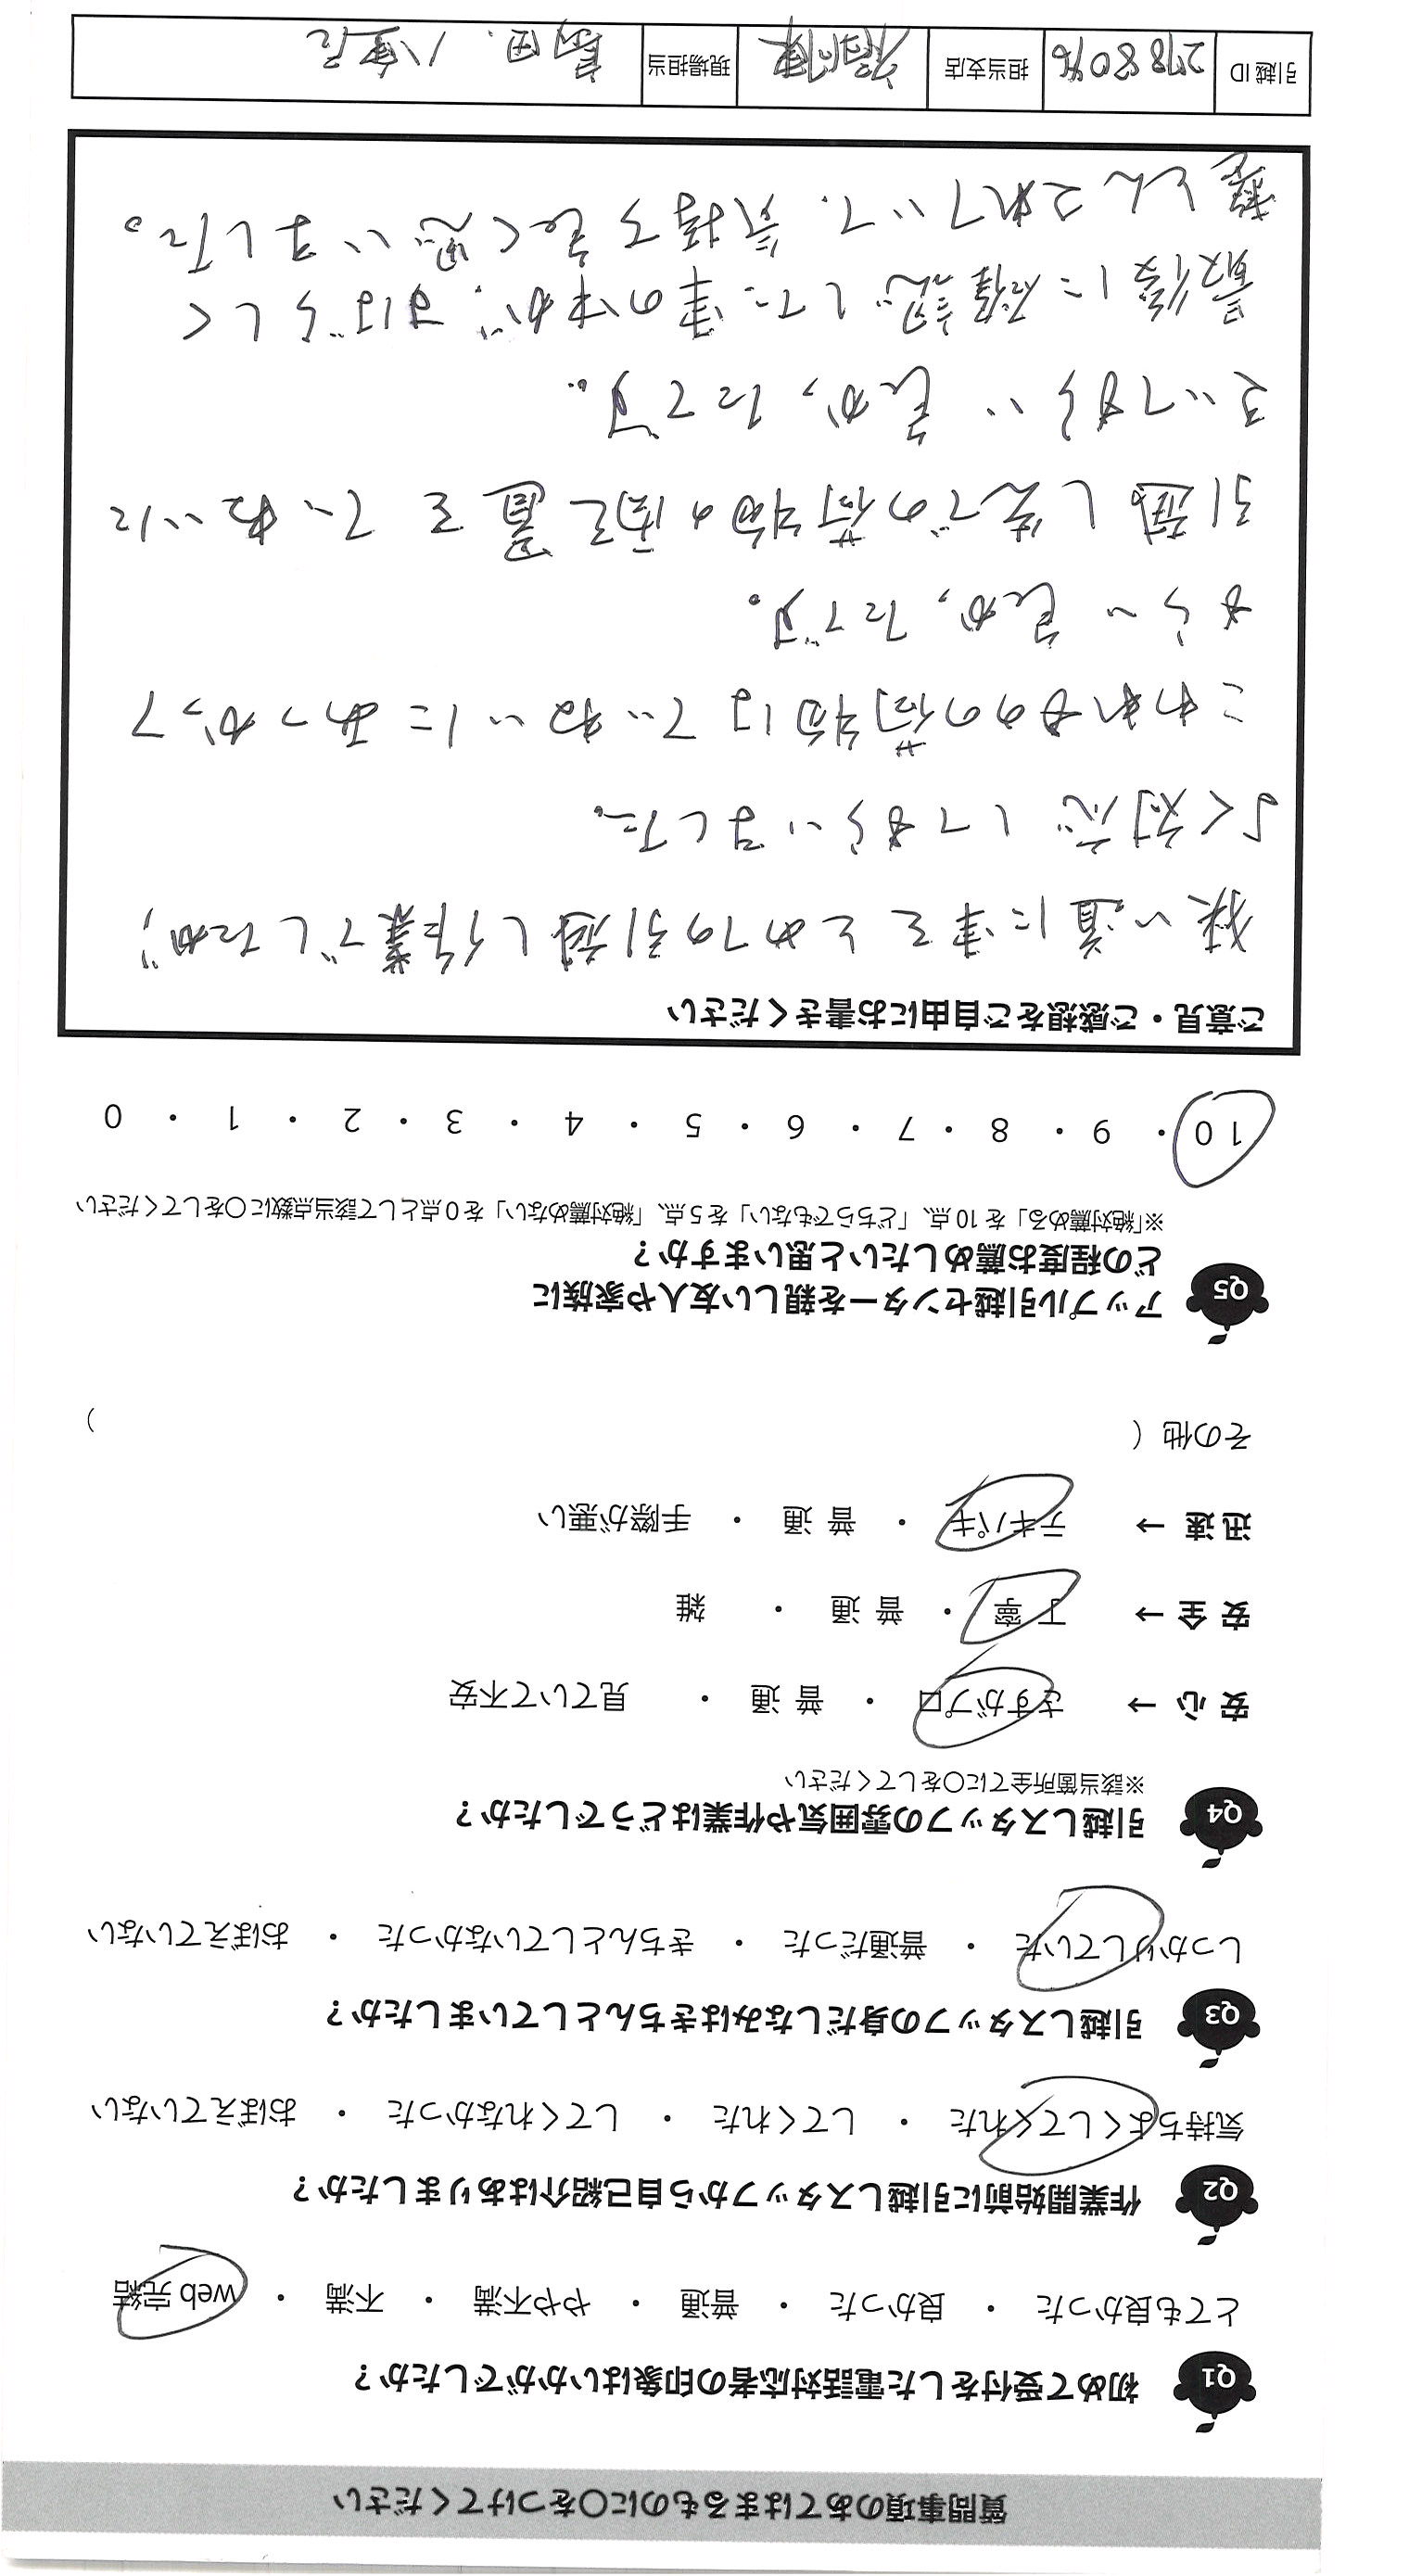 質問事項のあてはまるものに○をつけてください
Q1 初めて受付をした電話対応者の印象はいかがでしたか？
とても良かった ・ 良かった ・ 普通 ・ やや不満 ・ 不満 ・ web 完結
Q2 作業開始前に引越しスタッフから自己紹介はありましたか？
気持ちよくしてくれた ・ してくれた ・ してくれなかった ・ おぼえていない
Q3 引越しスタッフの身だしなみはきちんとしていましたか？
しっかりしていた ・ 普通だった ・ きちんとしていなかった ・ おぼえていない
Q4 引越しスタッフの雰囲気や作業はどうでしたか？
※該当箇所全てに○をしてください
安心 → さすがプロ ・ 普通 ・ 見ていて不安
安全 → 丁寧 ・ 普通 ・ 雑
迅速 → テキパキ ・ 普通 ・ 手際が悪い
その他（ ）
Q5 アップル引越センターを親しい友人や家族に
どの程度お薦めしたいと思いますか？
※「絶対薦める」を 10 点、「どちらでもない」を 5 点、「絶対薦めない」を 0 点として該当点数に○をしてください
10 ・ 9 ・ 8 ・ 7 ・ 6 ・ 5 ・ 4 ・ 3 ・ 2 ・ 1 ・ 0
ご意見・ご感想をご自由にお書きください
狭い道に車をとめての引越し作業でしたが、
よく対応してもらいました。
こわれものの荷物はていねいにあつかって
もらい良かったです。
引越し先での荷物の 置を ていねいに
もらい 良かったです。
最後に確認した車の中が、すばらしく
整とんされていて、気持ち良く思いました。
引越 ID 担当支店 現場担当